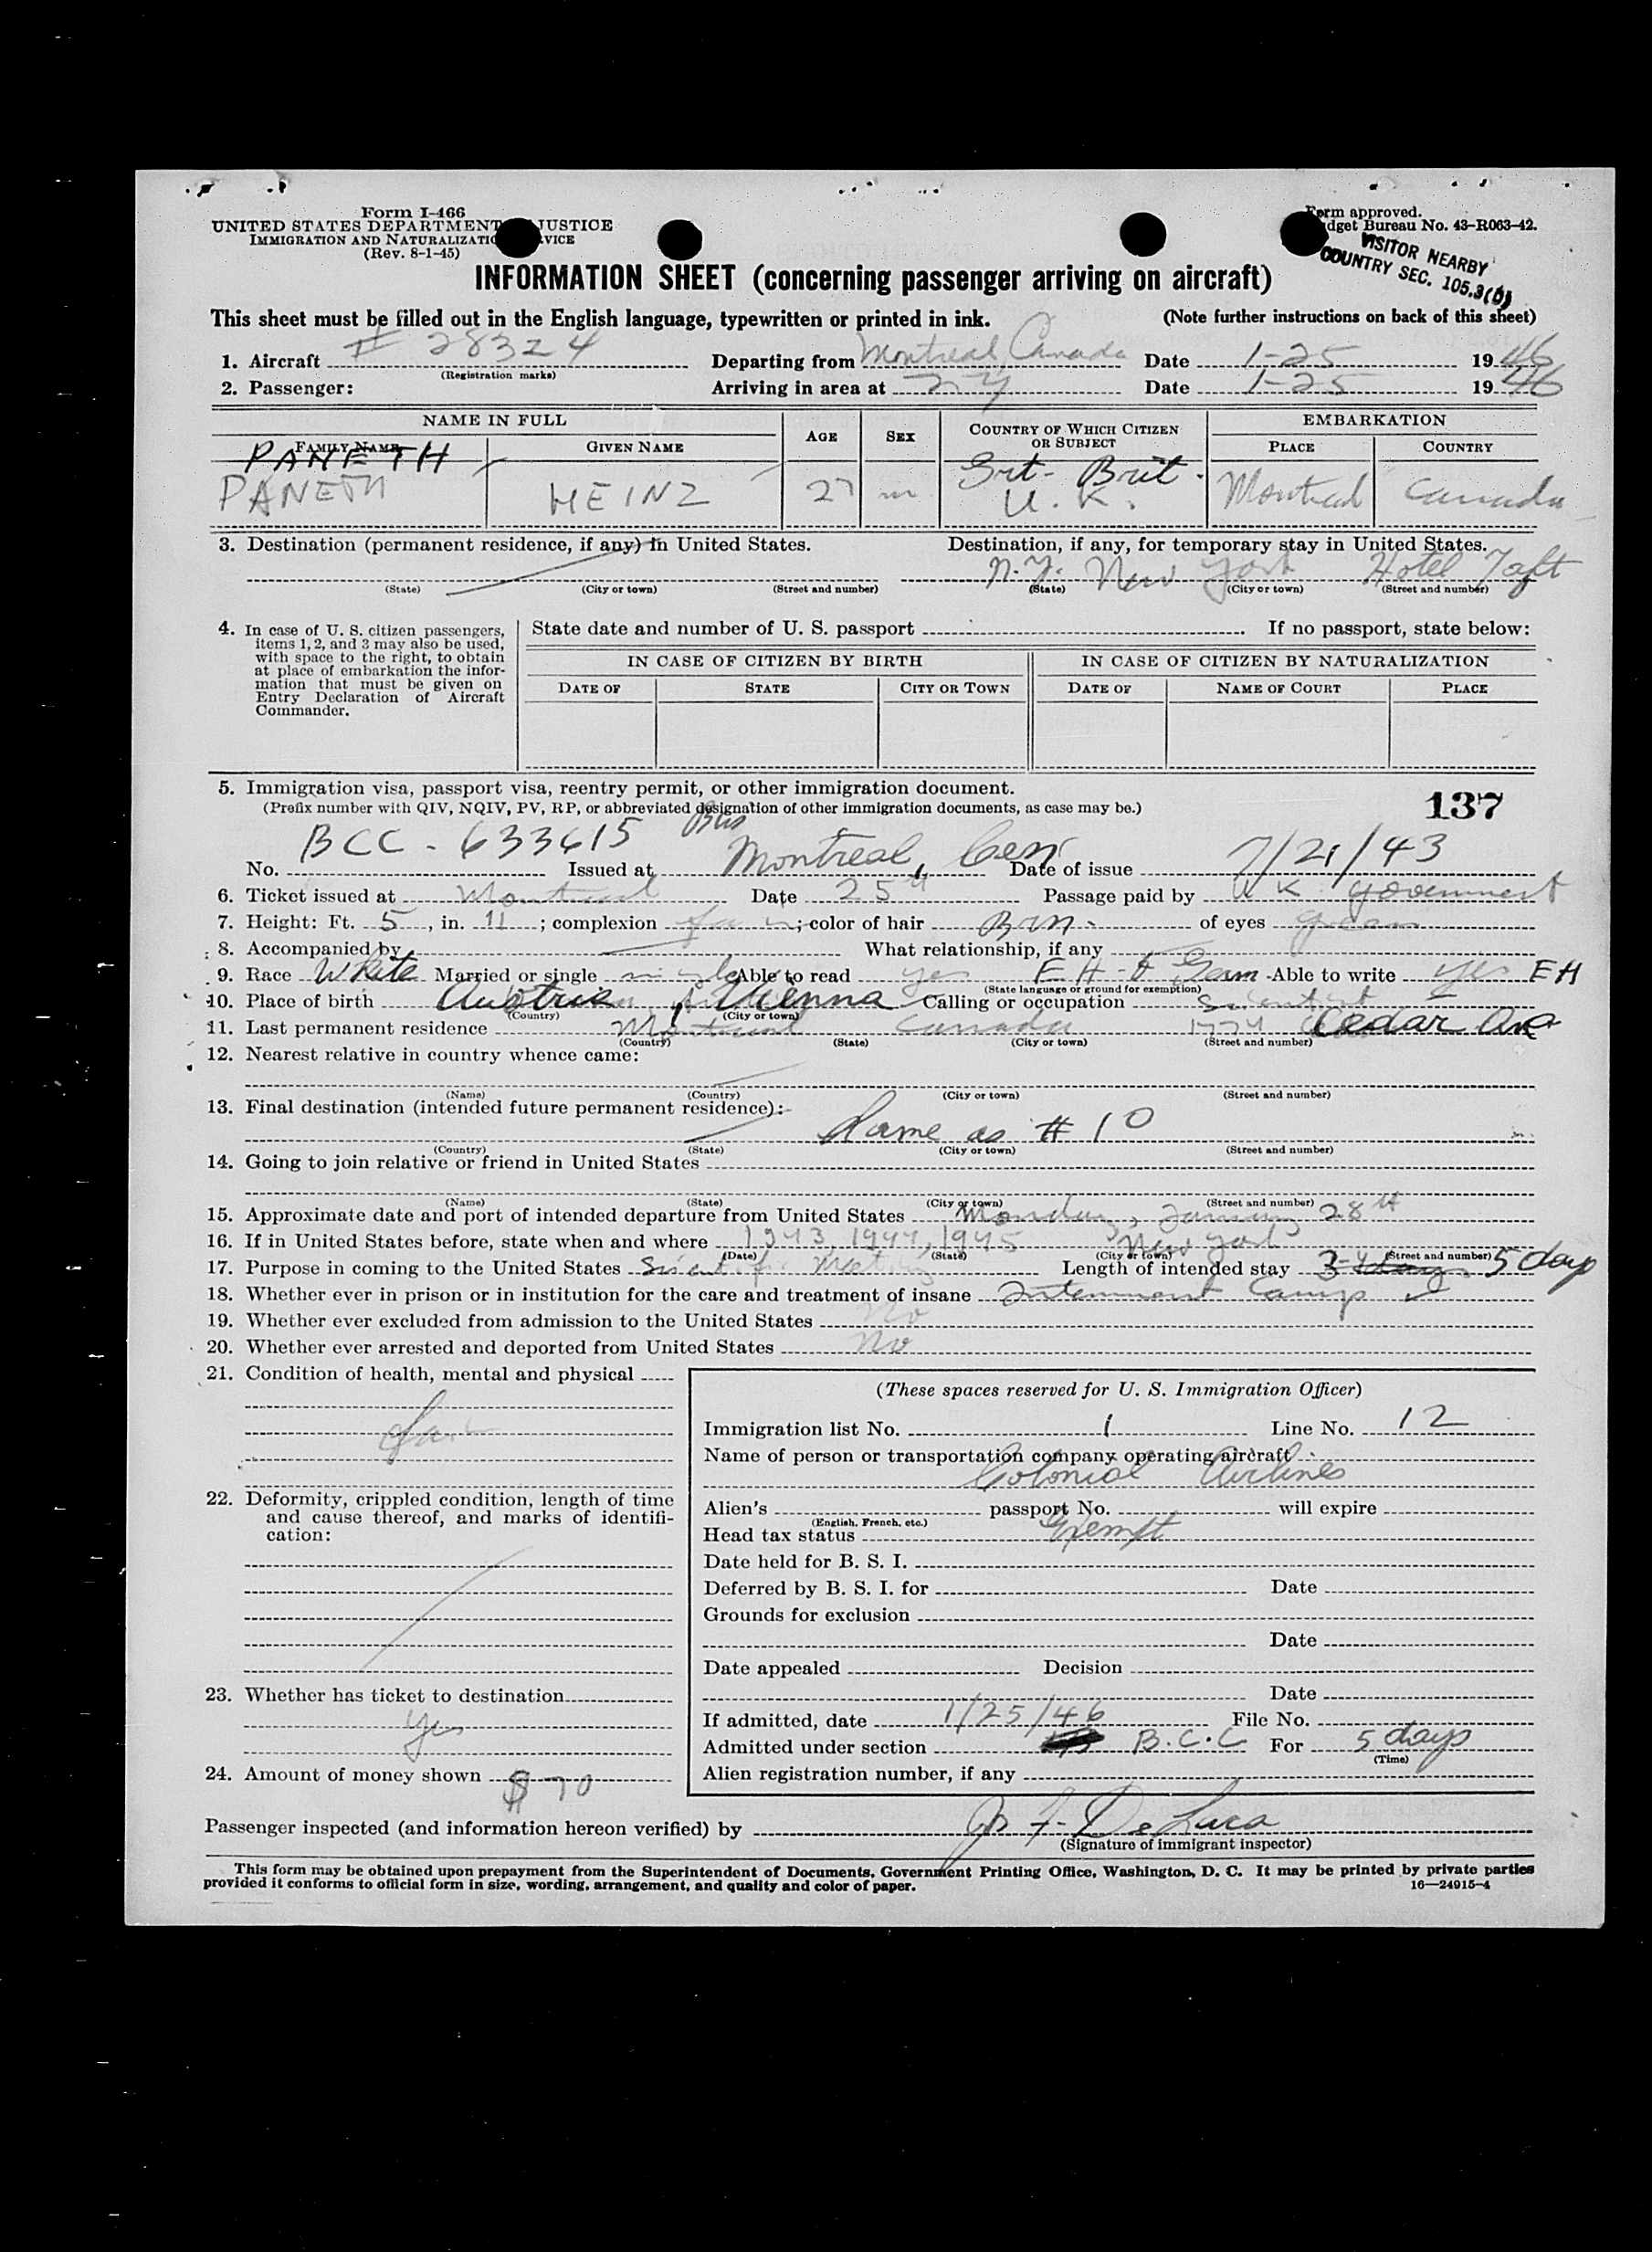 Form I-466
UNITED STATES DEPARTMENT JUSTICE
IMMIGRATION AND NATURALIZATI VICE
(Rev. 8-1-45)
Form approved.
dget Bureau No. 43-R063-42.
VISITOR NEARBY
COUNTRY SEC. 105.3(b)
INFORMATION SHEET (concerning passenger arriving on aircraft)
This sheet must be filled out in the English language, typewritten or printed in ink. (Note further instructions on back of this sheet)
1. Aircraft # 28324 Departing from Montreal, Canada Date 1-25 1946
(Registration marks)
2. Passenger: Arriving in area at N Y Date 1-25 1946
NAME IN FULL AGE SEX COUNTRY OF WHICH CITIZEN OR SUBJECT EMBARKATION
FAMILY NAME GIVEN NAME PLACE COUNTRY
PANETH Grt- Brit.
PANETH HEINZ 27 m U.K. Montreal Canada
3. Destination (permanent residence, if any) in United States. Destination, if any, for temporary stay in United States.
N.Y. New York Hotel Taft
(State) (City or town) (Street and number) (State) (City or town) (Street and number)
4. In case of U. S. citizen passengers, items 1, 2, and 3 may also be used, with space to the right, to obtain at place of embarkation the information that must be given on Entry Declaration of Aircraft Commander.
State date and number of U. S. passport If no passport, state below:
IN CASE OF CITIZEN BY BIRTH IN CASE OF CITIZEN BY NATURALIZATION
DATE OF STATE CITY OR TOWN DATE OF NAME OF COURT PLACE
5. Immigration visa, passport visa, reentry permit, or other immigration document.
(Prefix number with QIV, NQIV, PV, RP, or abbreviated designation of other immigration documents, as case may be.)
137
No. BCC - 633615 Bus Issued at Montreal, Can Date of issue 7/21/43
6. Ticket issued at Montreal Date 25th Passage paid by U K government
7. Height: Ft. 5, in. 11; complexion fair; color of hair Brn. of eyes green
8. Accompanied by What relationship, if any
9. Race White Married or single single Able to read yes EH-F Germ Able to write yes EH
(State language or ground for exemption)
10. Place of birth Austria Vienna Calling or occupation Scientist
(Country) (City or town)
11. Last permanent residence Montreal Canada Cedar Ave
(Country) (State) (City or town) (Street and number)
12. Nearest relative in country whence came:
(Name) (Country) (City or town) (Street and number)
13. Final destination (intended future permanent residence):
Same as # 10
(Country) (State) (City or town) (Street and number)
14. Going to join relative or friend in United States
(Name) (State) (City or town) (Street and number)
15. Approximate date and port of intended departure from United States Monday, January 28th
16. If in United States before, state when and where 1943, 1944, 1945 New York
(Date) (State) (City or town) (Street and number)
17. Purpose in coming to the United States Scientific Meeting Length of intended stay 3-4 days 5 days
18. Whether ever in prison or in institution for the care and treatment of insane Internment Camp
19. Whether ever excluded from admission to the United States No
20. Whether ever arrested and deported from United States No
21. Condition of health, mental and physical
22. Deformity, crippled condition, length of time and cause thereof, and marks of identification:
23. Whether has ticket to destination
yes
24. Amount of money shown $ 70
(These spaces reserved for U. S. Immigration Officer)
Immigration list No. 1 Line No. 12
Name of person or transportation company operating aircraft
Colonial Airlines
Alien's passport No. will expire
(English, French, etc.)
Head tax status Exempt
Date held for B. S. I.
Deferred by B. S. I. for Date
Grounds for exclusion
Date
Date appealed Decision
Date
If admitted, date 1/25/46 File No.
Admitted under section B.C.C For 5 days
(Time)
Alien registration number, if any
Passenger inspected (and information hereon verified) by F. De Luca
(Signature of immigrant inspector)
This form may be obtained upon prepayment from the Superintendent of Documents, Government Printing Office, Washington, D. C. It may be printed by private parties
provided it conforms to official form in size, wording, arrangement, and quality and color of paper. 16—24915-4